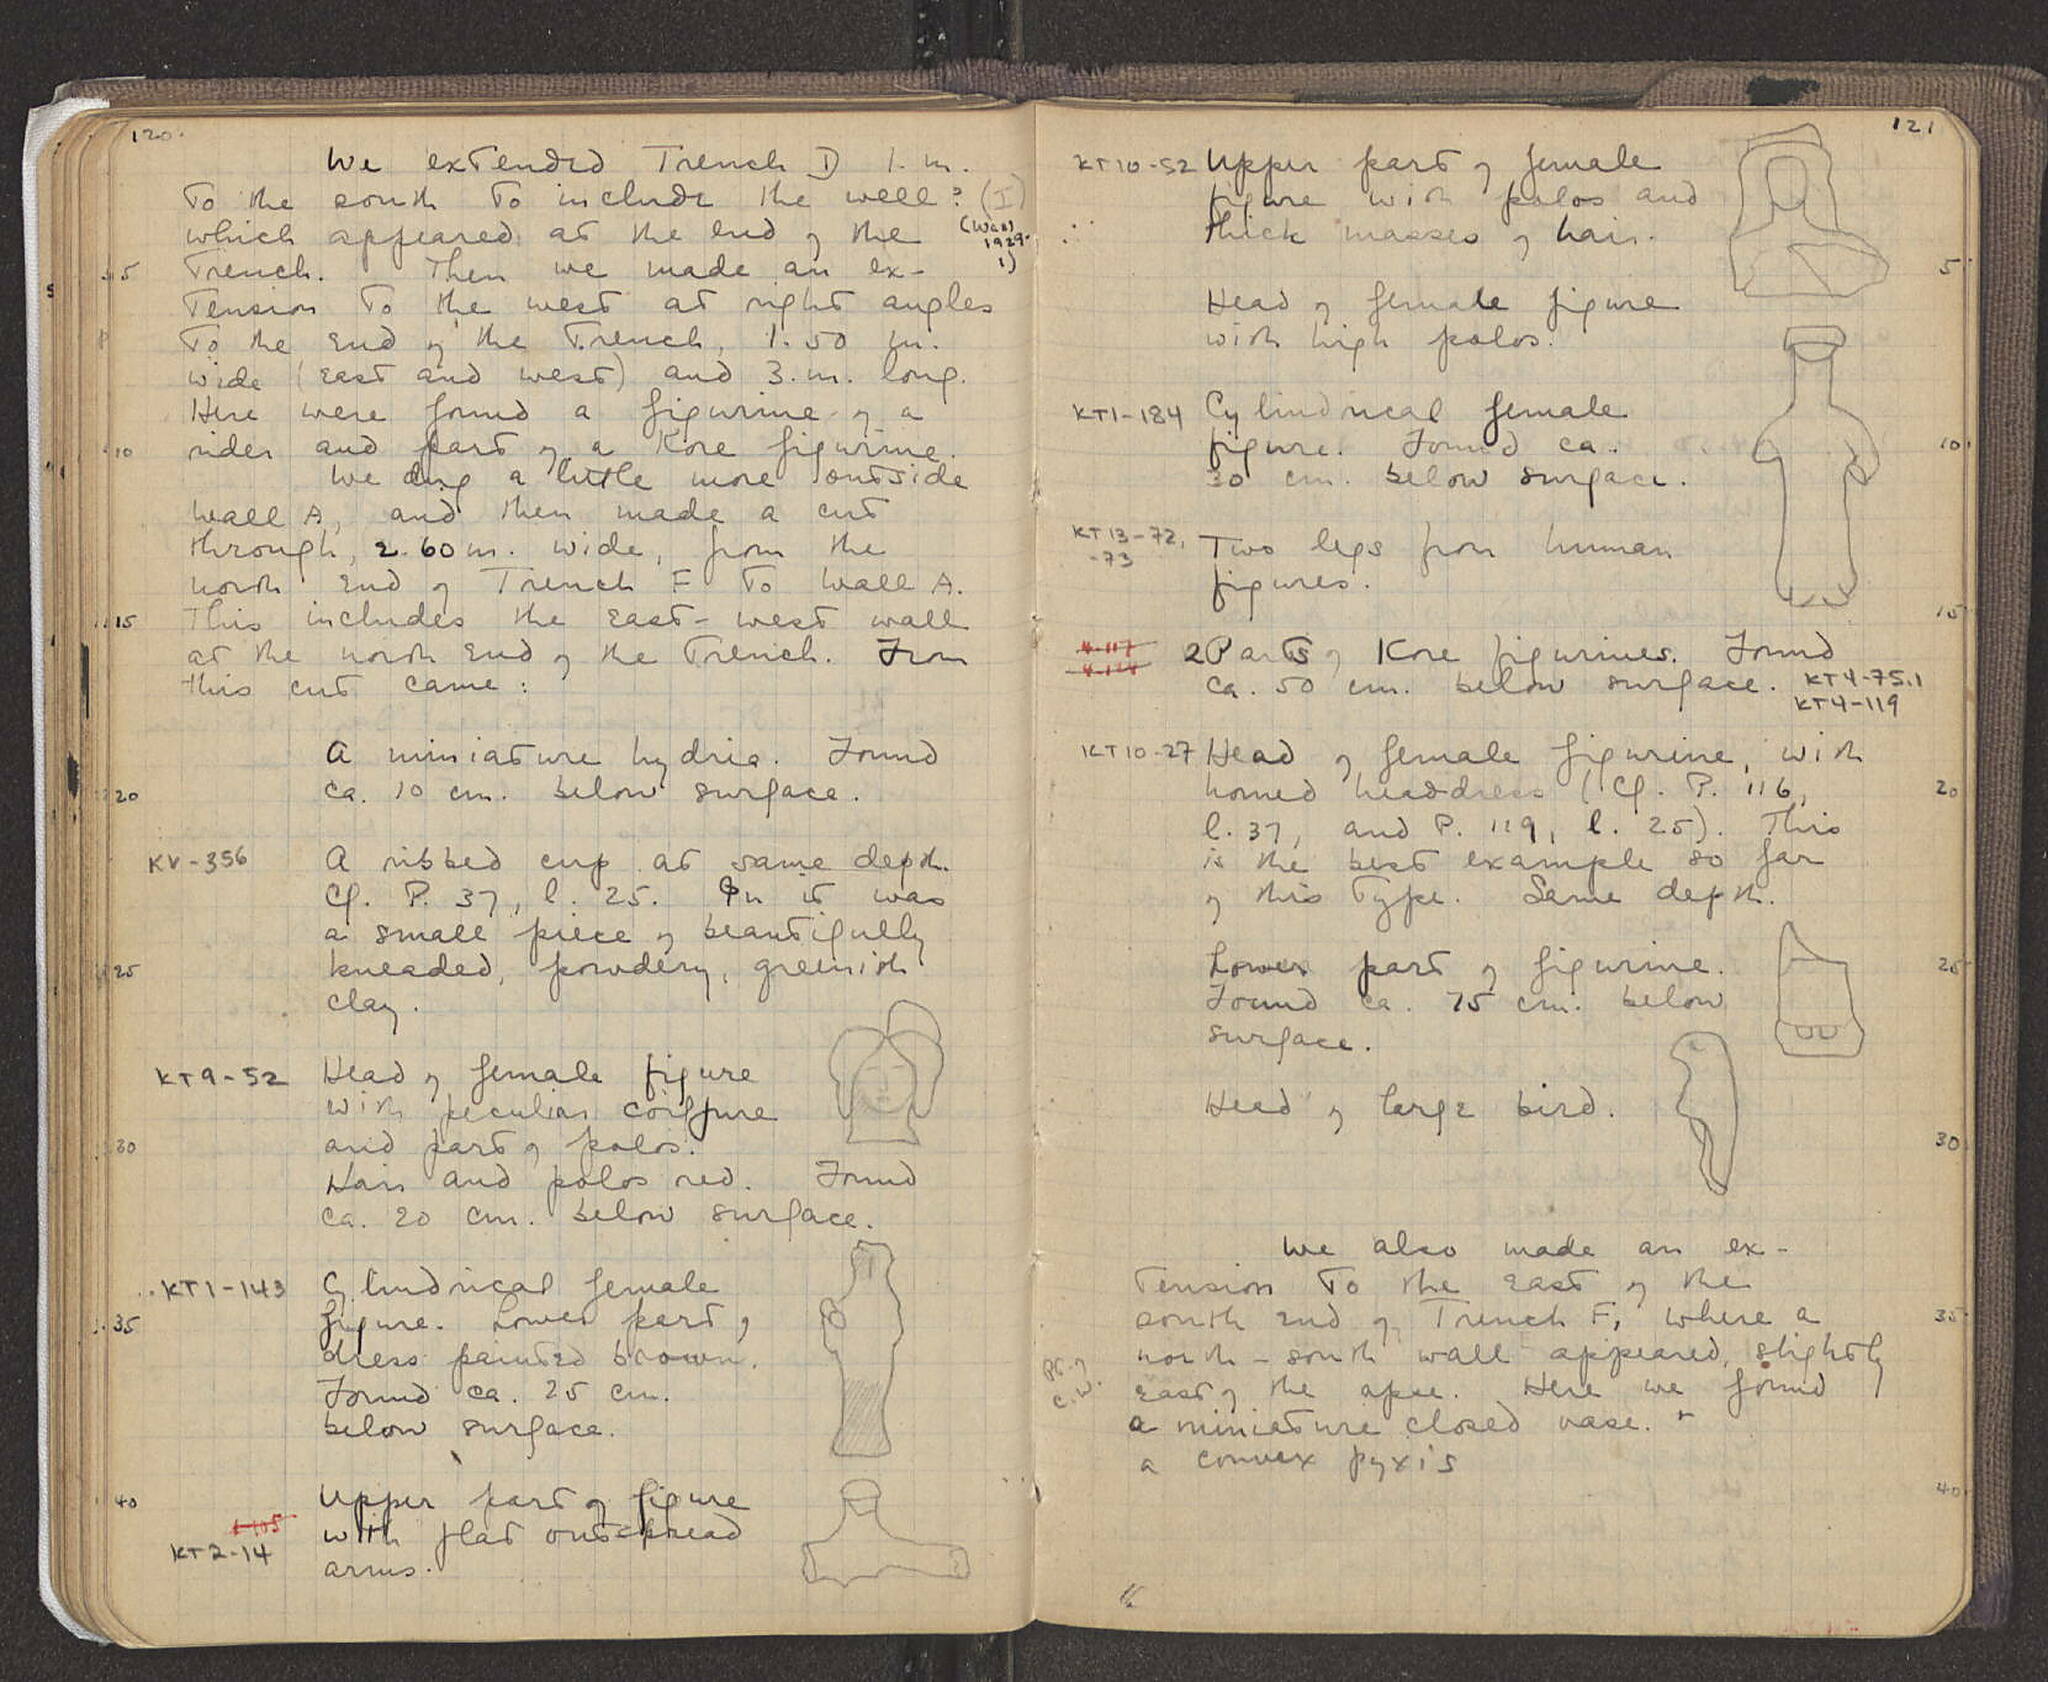 120.
We extended Trench D 1. m.
to the south to include the well? (I)
which appeared at the end of the (Well
1929-
1)
5 trench. Then we made an ex-
tension to the west at right angles
to the end of the trench, 1.50 m.
wide (east and west) and 3. m. long.
Here were found a figurine of a
10 rider and part of a Kore figurine.
We dug a little more outside
wall A, and then made a cut
through, 2.60 m. wide, from the
north end of Trench F to wall A.
15 This includes the east-west wall
at the north end of the trench. From
this cut came:
A miniature hydria. Found
20 ca. 10 cm. below surface.
KV-356 A ribbed cup at same depth.
Cf. P. 37, l. 25. In it was
a small piece of beautifully
25 kneaded, powdery, greenish
clay.
KT9-52 Head of female figure
with peculiar coiffure
30 and part of polos.
Hair and polos red. Found
ca. 20 cm. below surface.
KT1-143 Cylindrical female
35 figure. Lower part of
dress painted brown.
Found ca. 25 cm.
below surface.
40 Upper part of figure
KT2-14 with flat outspread
arms.
121
KT10-52 Upper part of female
figure with polos and
thick masses of hair.
5
Head of female figure
with high polos.
KT1-184 Cylindrical female
figure. Found ca. 10
30 cm. below surface.
KT13-72, Two legs from human
-73
figures. 15
4-117 2 Parts of Kore figurines. Found
ca. 50 cm. below surface. KT4-75.1
KT4-119
KT10-27 Head of female figurine, with
horned headdress (Cf. P. 116, 20
l. 37, and P. 119, l. 25). This
is the best example so far
of this type. Same depth.
Lower part of figurine. 25
Found ca. 75 cm. below
surface.
Head of large bird.
30
We also made an ex-
tension to the east of the
south end of Trench F, where a 35
north-south wall appeared, slightly
east of the apse. Here we found
a miniature closed vase. +
a convex pyxis
40